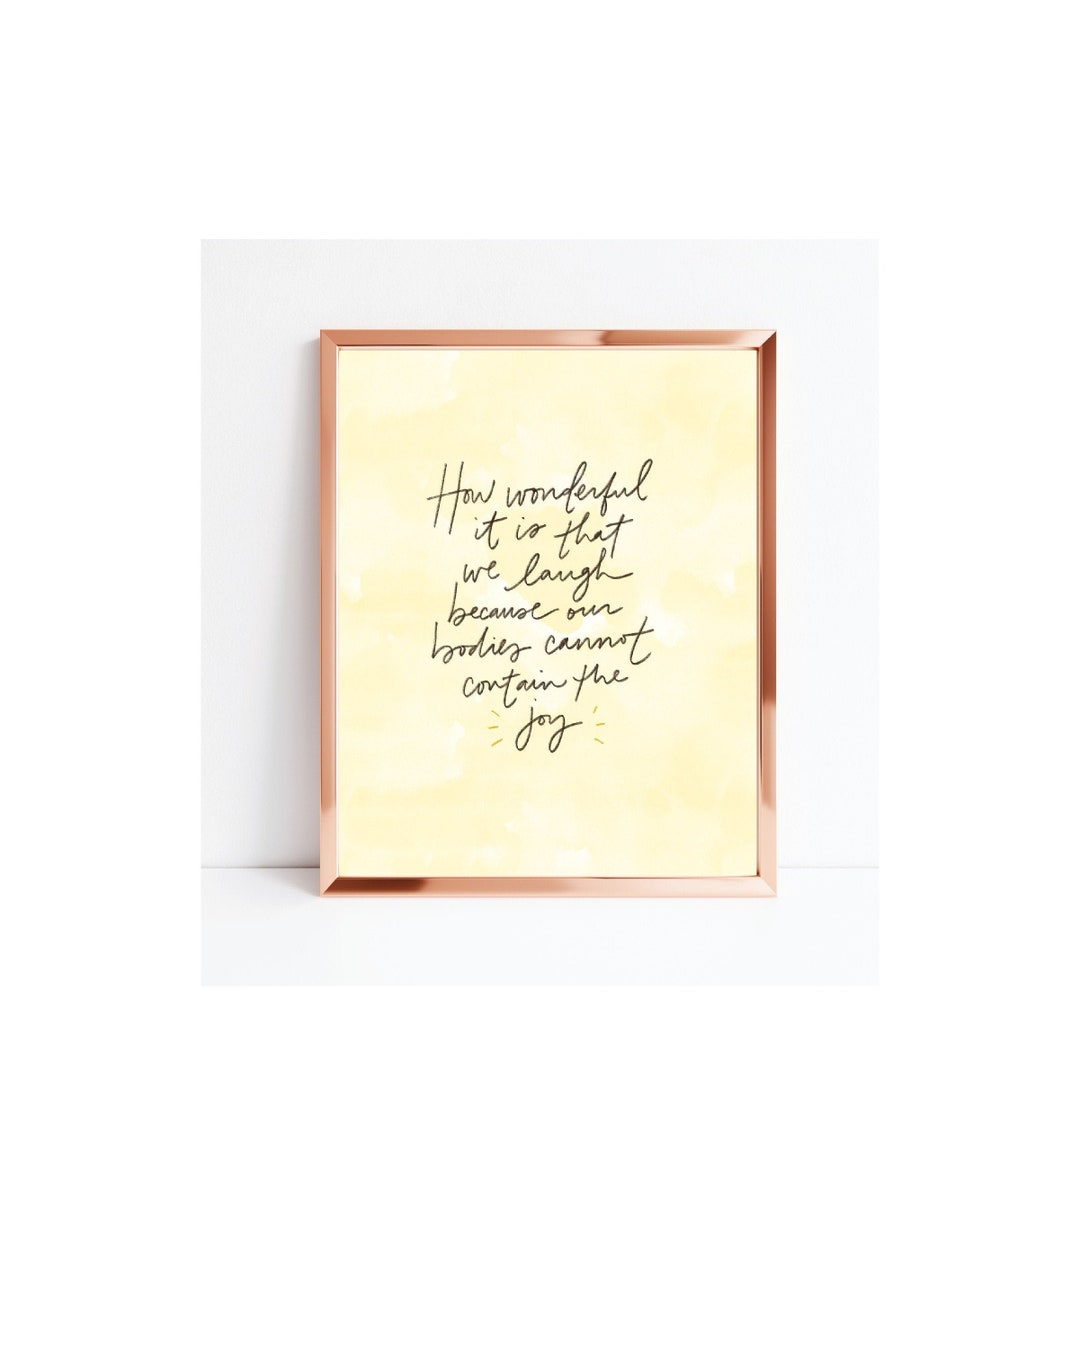 How wonderful
it is that
we laugh
because our
bodies cannot
contain the
joy